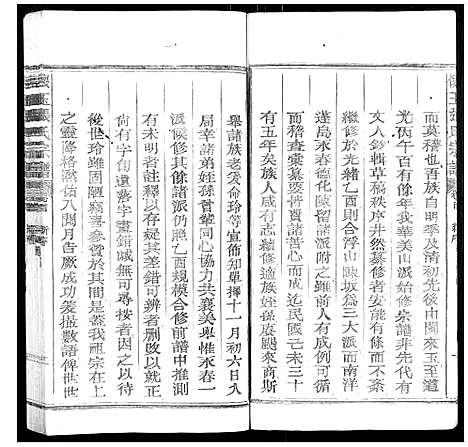 而莫稽也吾族自明季及清初先後由閩來玉至道
光丙午百有餘年我華美山派始修宗譜非先代有
文人鈔輯草稿秩序井然纂修者安能有條而不紊
繼修於光緒乙酉則合浮山陳坂為三大派而南洋
蓬島永春德化陳留諸派附之雖前人有成例可循
而稽查彙纂幾費諸苦心而成迄民國己未三十
有五年矣族人咸有志續修適永春孫庚颺來商斯
舉諸族老爰命玲等宣佈知單擇十一月初六日入
局幸諸弟姪孫曾輩同心協力共襄美舉惟永春一
派候修其餘諸派仍照乙酉規模合修前譜中推測
有未明者註釋以存疑其差錯可辨者刪改以就正
尚有何字句遺落字畫錯誠無可尋按者因文之
後世玲雖固陋竊喜參贊於其間是蓋我祖宗在上
之靈降格默佑八閱月告厥成功爰撮數語俾世世